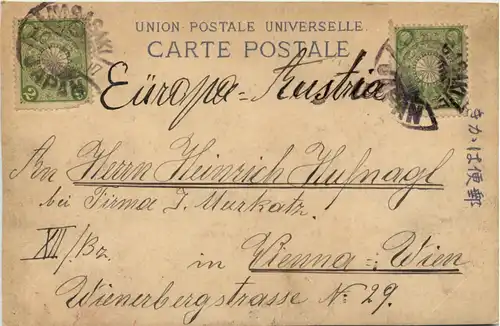 UNION POSTALE UNIVERSELLE
CARTE POSTALE
NAGASAKI
JAPAN
Europa - Austria
An Herrn Heinrich Hufnagl
bei Firma J. Murkatz.
XII/Bz.
in Vienna = Wien
Wienerbergstrasse No 29.
きかは便郵